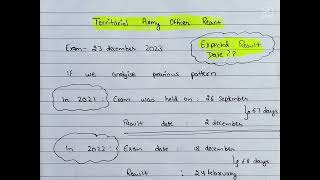 Territorial Army Officer Result
Exam - 23 december 2023
Expected Result
Date??
If we analyise previous pattern
In 2021 : Exam was held on : 26 September
67 days
Result date : 2 december
In 2022 : Exam date : 18 december
68 days
Result : 24 february